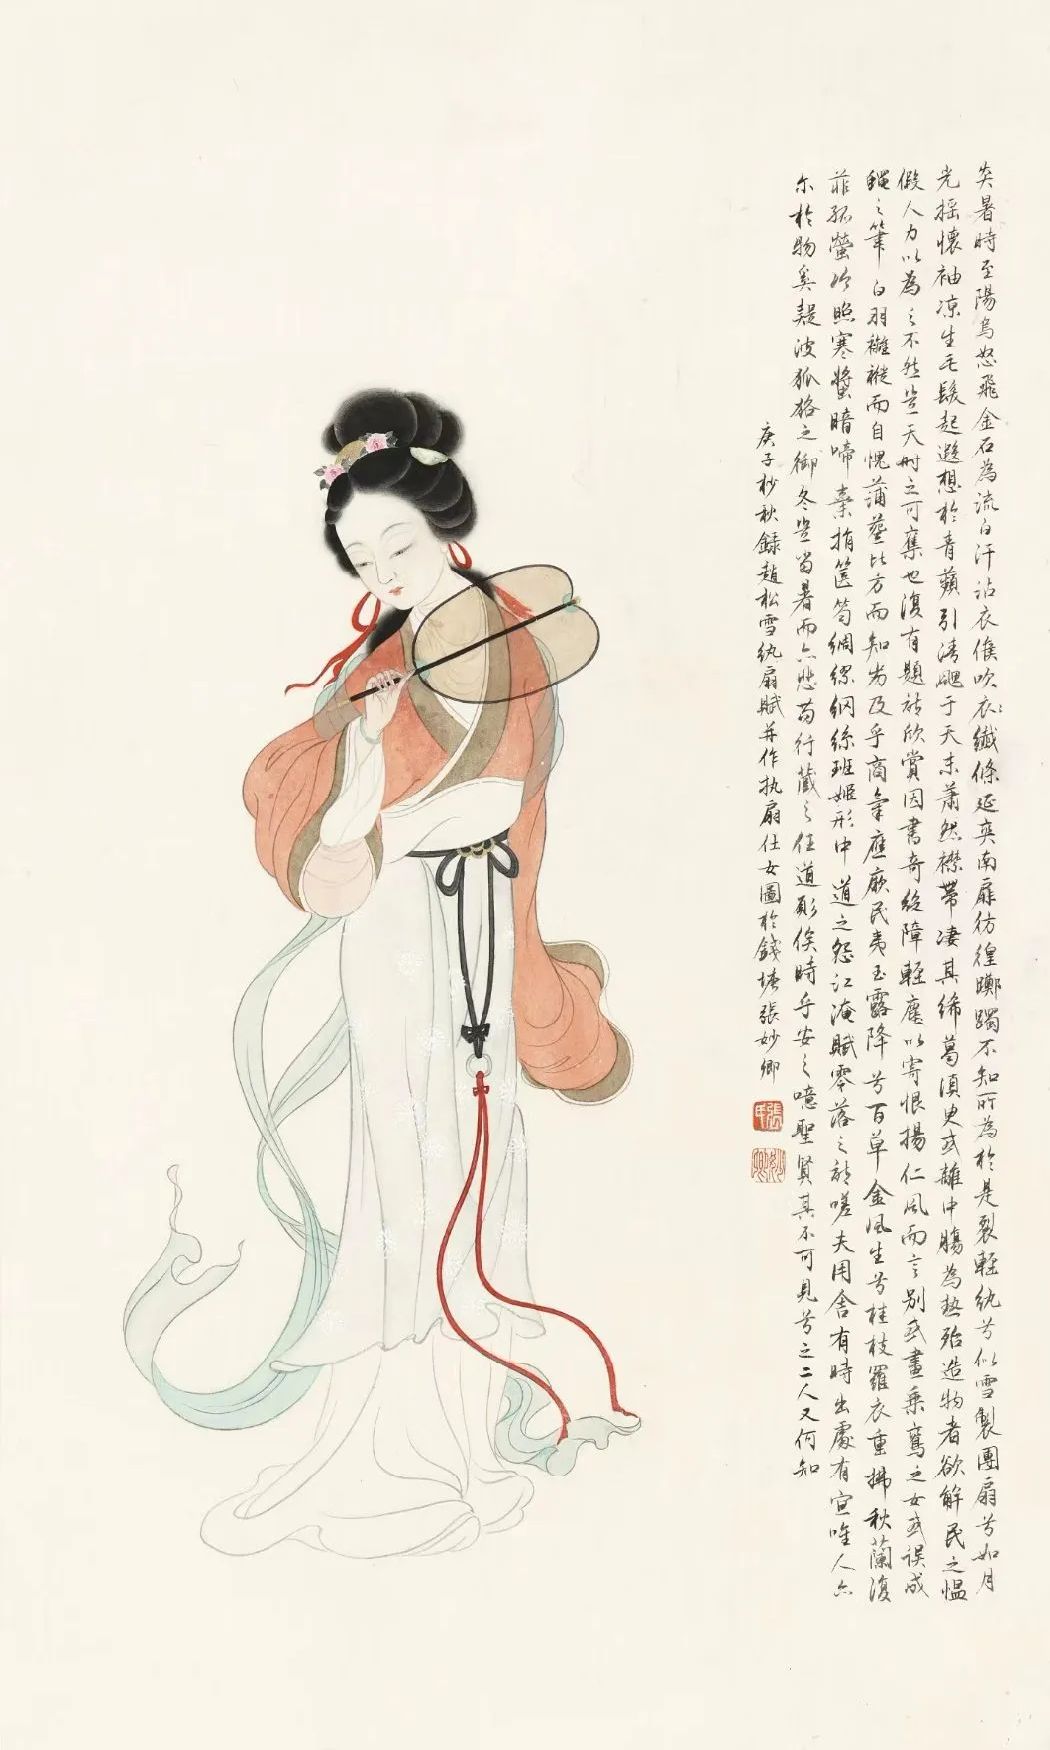 炎暑時至陽烏怒飛金石為流白汗沾衣倏吹衣纖絺延爽南扉彷徨躑躅不知所為於是裂輕紈兮似雪製團扇兮如月
光搖懷袖凉生毛髮起遐想於青蘋引清颸于天末蕭然襟帶淒其絺葛湏臾或離中腸為熱殆造物者欲解民之愠
假人力以為之不然豈天時之可奪也復有題詩欣賞因書奇絕障輕塵以寄恨揚仁風而言別或畫乗鸞之女或誤成
蠅之筆白羽襳襹而自愧蒲葵比方而知劣及乎商氣應厥民夷玉露降兮百草金風生兮桂枝羅衣重拂秋蘭復
菲孤螢炤寒螿暗啼棄捐篋笥綢繆網絲班姬形中道之怨江淹賦零落之詩嗟夫用舍有時出處有宜唯人亦
尓於物奚疑波狐貉之御冬豈當暑而亦悲苟行藏之任道彫俟時乎安之噫聖賢其不可見兮之二人又何知
庚子杪秋録趙松雪紈扇賦并作执扇仕女圖於錢塘張妙卿
張氏
妙卿